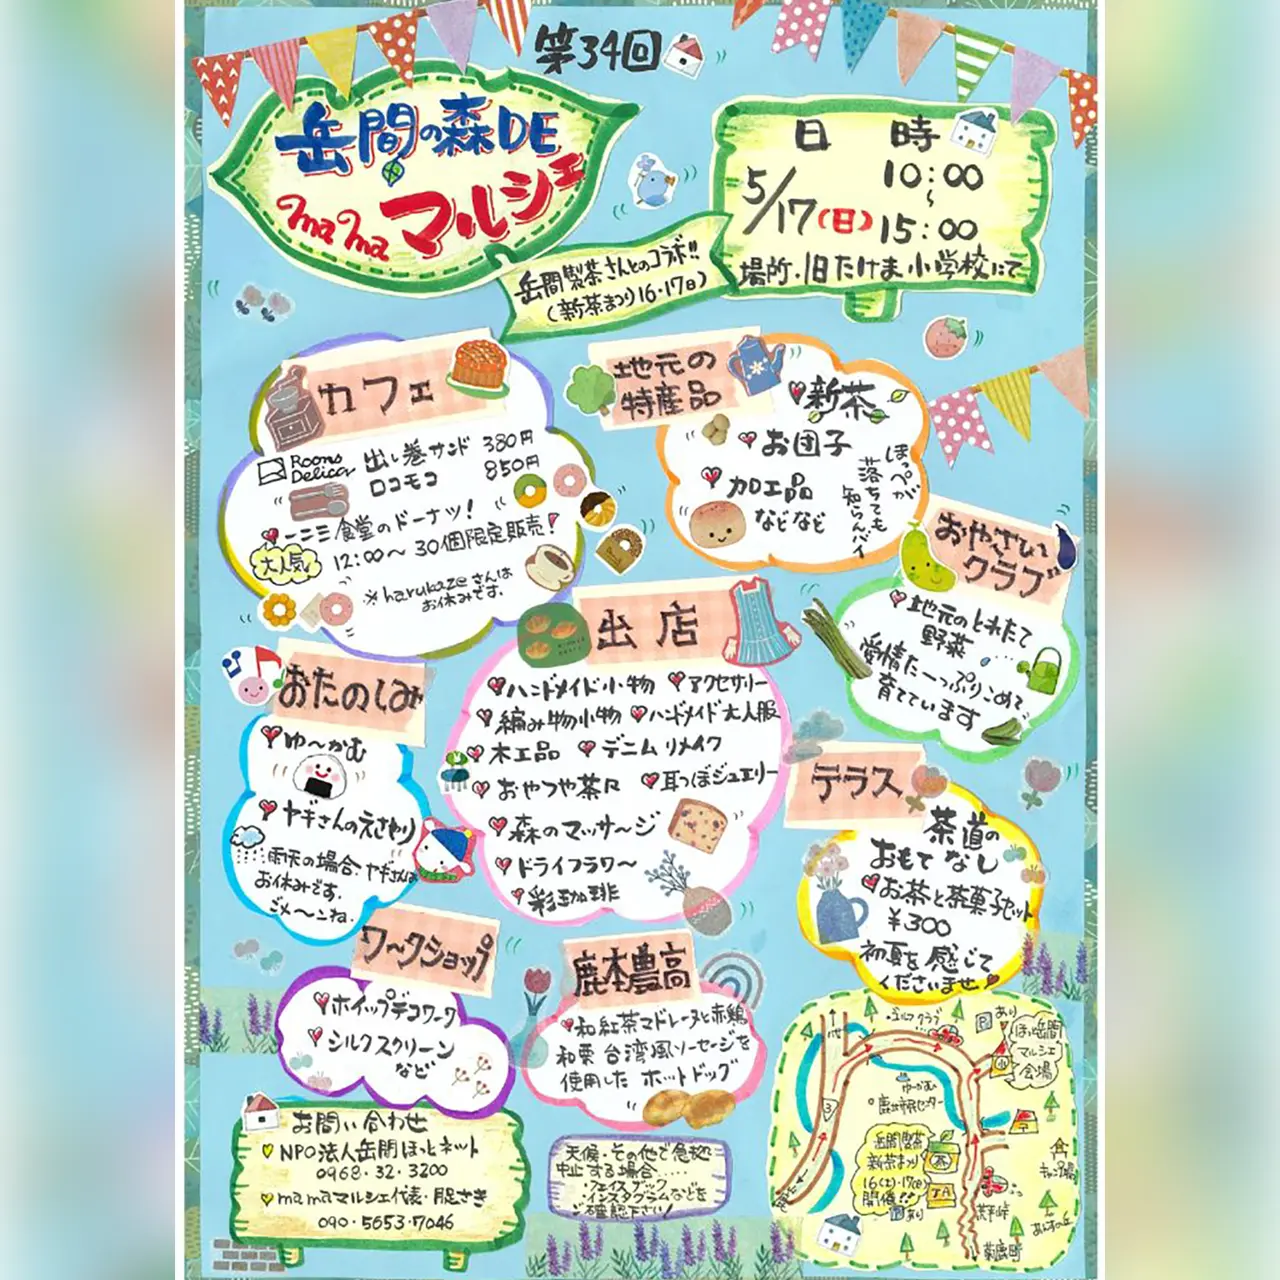 第34回
岳間の森DE
mama マルシェ
日 時
5/17(日) 10:00
〜
15:00
場所・旧たけま小学校にて
岳間製茶さんとのコラボ!!
(新茶まつり16・17日)
カフェ
Roons Delica 出し巻サンド 380円
ロコモコ 850円
一二三食堂のドーナツ!
大人気
12:00〜 30個限定販売!
※harukazeさんは
お休みです。
地元の
特産品
新茶
お団子
加工品
などなど
ほっぺが
落ちても
知らんバイ
おやさい
クラブ
地元のとれたて
野菜
愛情たーっぷりこめて
育てています
出店
ハンドメイド小物 アクセサリー
編み物小物 ハンドメイド大人服
木工品 デニムリメイク
おやつや茶R 耳つぼジュエリー
森のマッサージ
ドライフラワー
彩珈琲
おたのしみ
ゆ〜かむ
ヤギさんのえさやり
雨天の場合、ヤギさんは
お休みです。
ごめ〜んね。
テラス
茶道の
おもてなし
お茶と茶菓子セット
¥300
初夏を感じて
くださいませ
ワークショップ
ホイップデコワーク
シルクスクリーン
など
鹿本農高
和紅茶マドレーヌと赤鶏
和栗 台湾風ソーセージを
使用した ホットドッグ
お問い合わせ
NPO法人岳間ほっとネット
0968・32・3200
mamaマルシェ代表・尾さき
090・5653・7046
天候・その他で急遽
中止する場合……
・フェイスブック
・インスタグラムなどを
ご確認下さい!
ゴルフクラブ
Pあり
ほっと岳間
マルシェ
会場
ゆーかむ
鹿北市民センター
3
岳間製茶
新茶まつり
16(土)・17(日)
開催!!
Pあり
茶
JA
キャンプ場
あんずの丘
菊鹿町